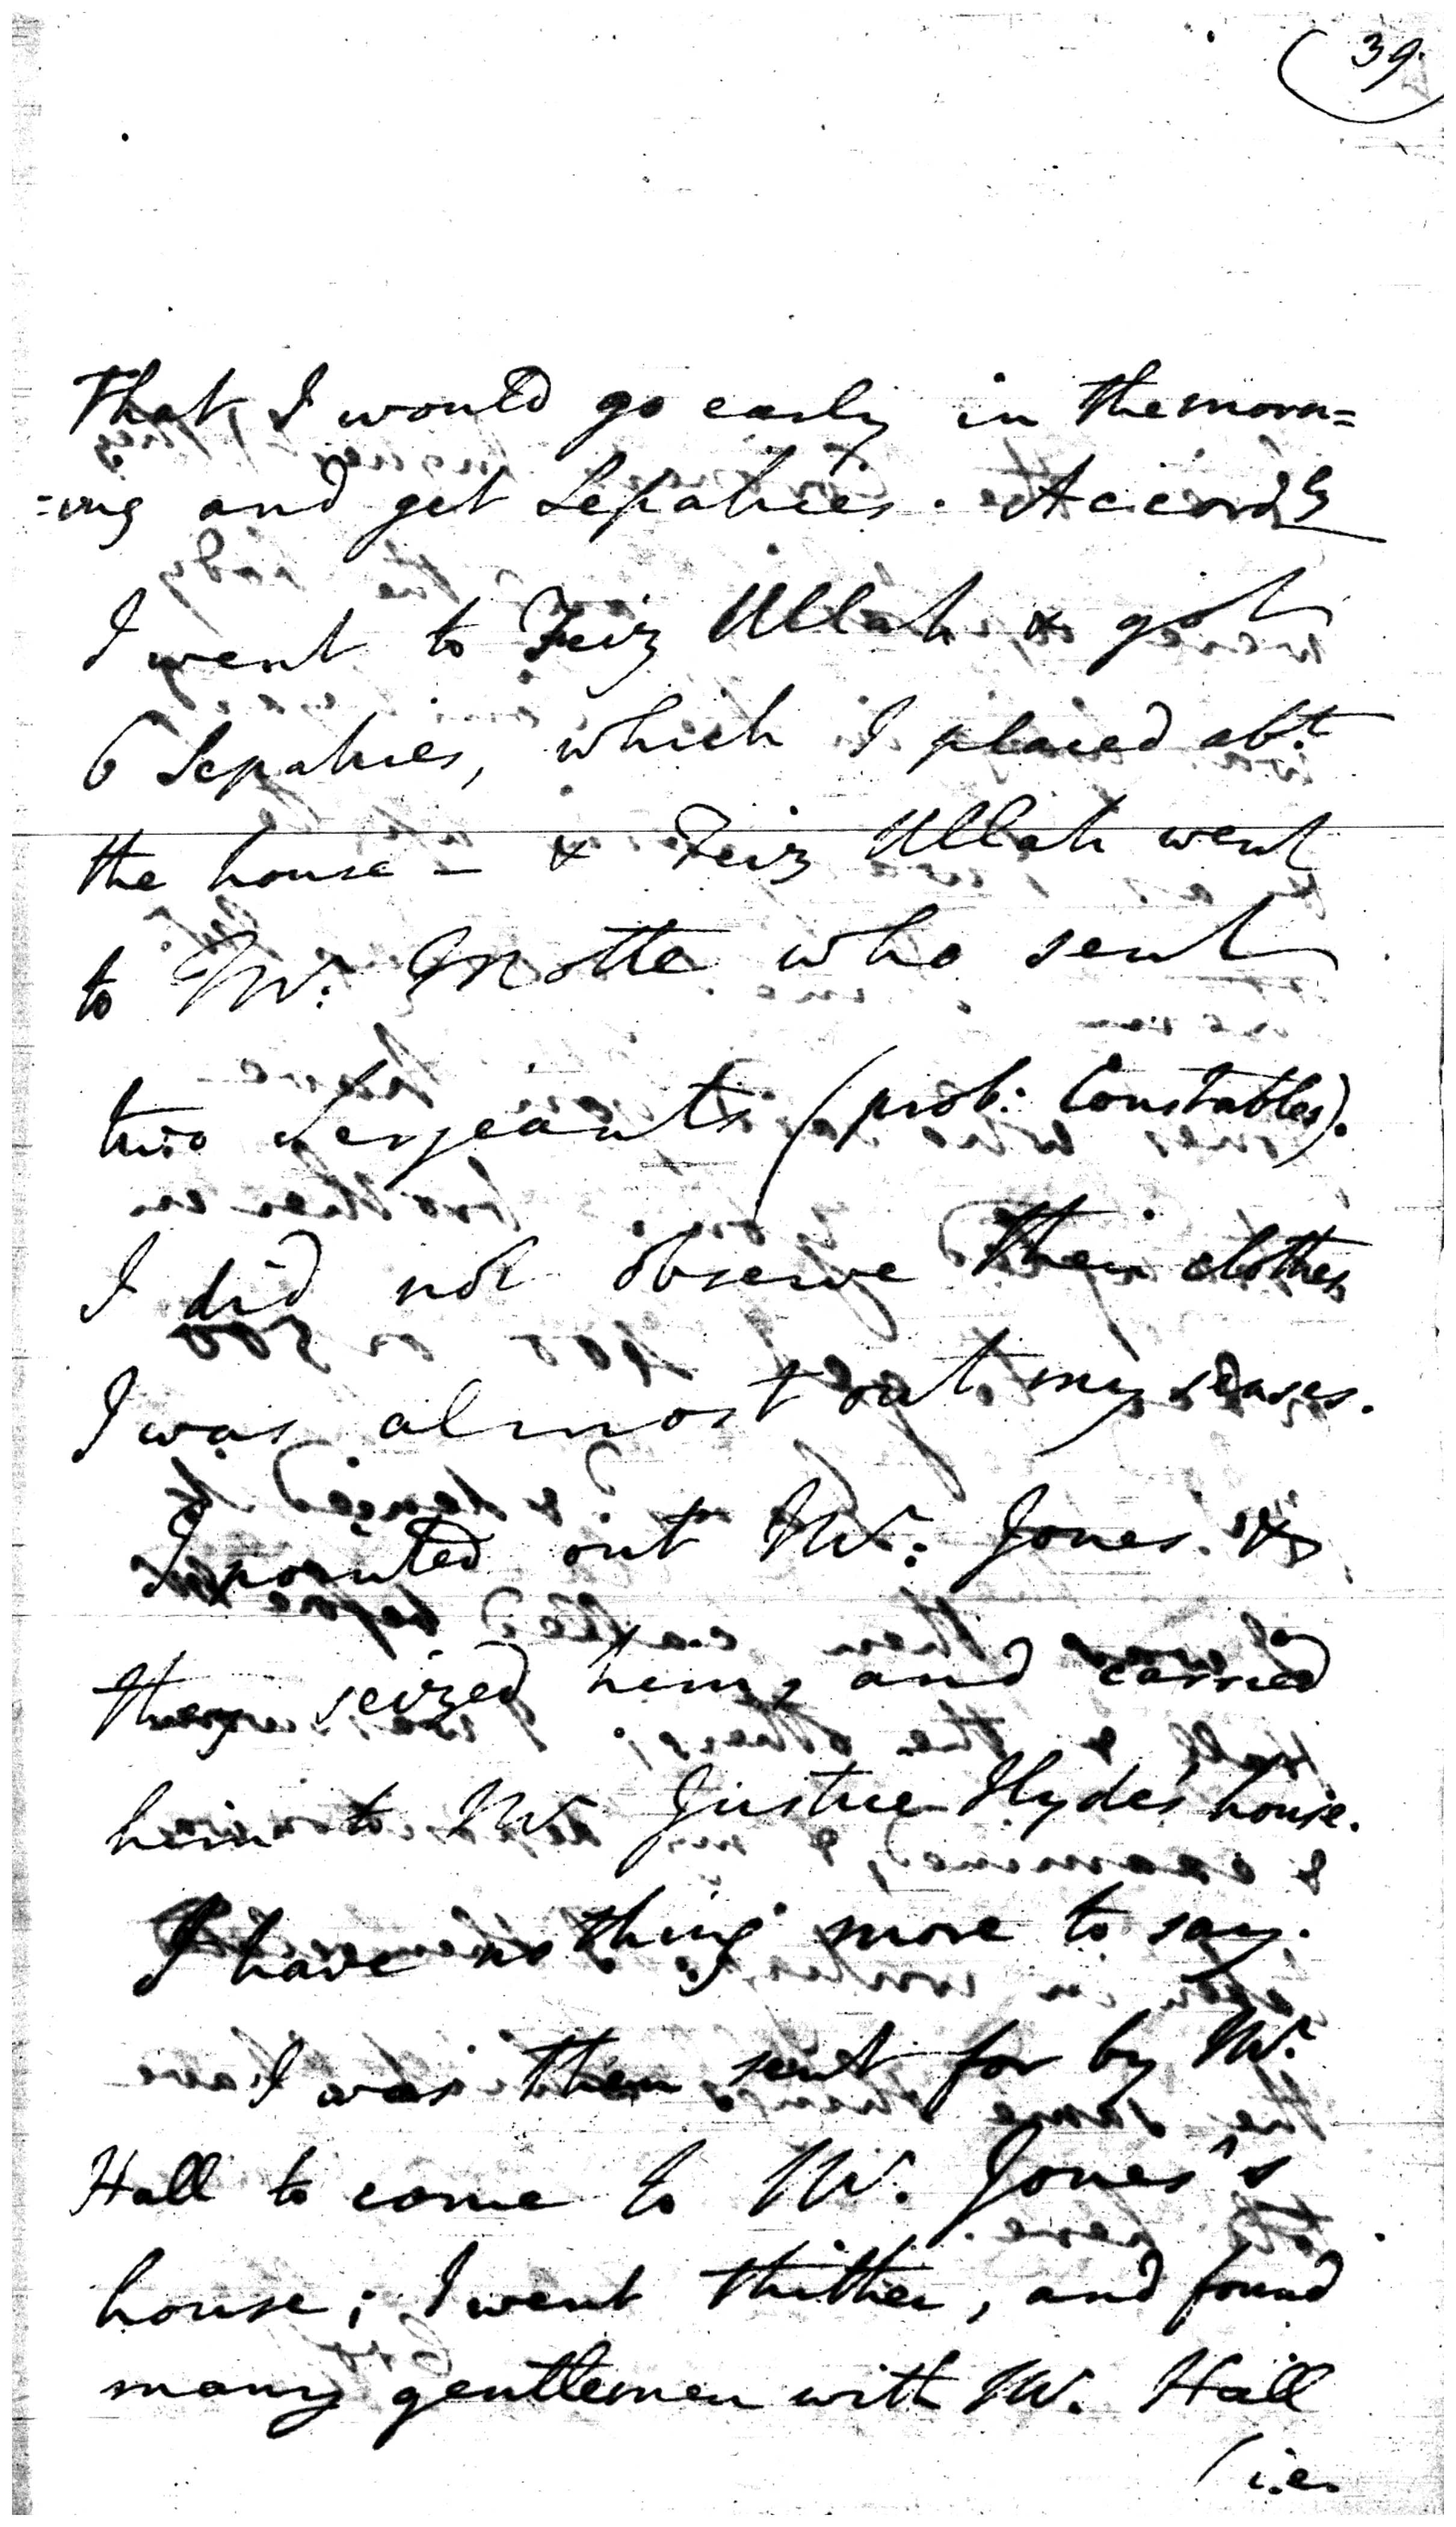 (39.
That, I would go early in the morn=
=ing and get Sepahies. Accordly
I went to Feiz Ullah & got
6 Sepahies, which I placed abt.
the house – & Feiz Ullah went
to Mr. Motte who sent
two Serjeants (prob: Constables).
I did not observe their clothes
I was almost out my senses.
I pointed out Mr. Jones. &
they seized him, and carried
him to Mr Justice Hyde's house.
I have nothing more to say.
I was then sent for by Mr.
Hall to come to Mr. Jones's
house; I went thither, and found
many gentlemen with Mr. Hall
(i.e.